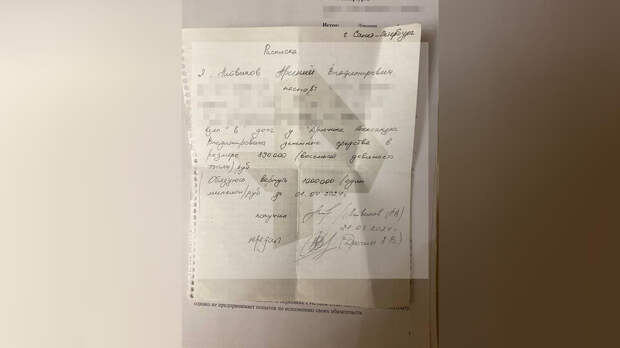 г. Санкт-Петербург
Расписка
Я, Литвинов Арсений Владимирович
паспорт
взял в долг у Дрынина Александра
Владимировича денежные средства в
размере 890000 /восемьсот девяносто
тысяч/ руб
Обязуюсь вернуть 1000000 /один
миллион/ руб до 01.04.2024г
получил (Литвинов АВ)
21.03.2024
передал
однако не предпринимает попыток по исполнению своих обязательств.